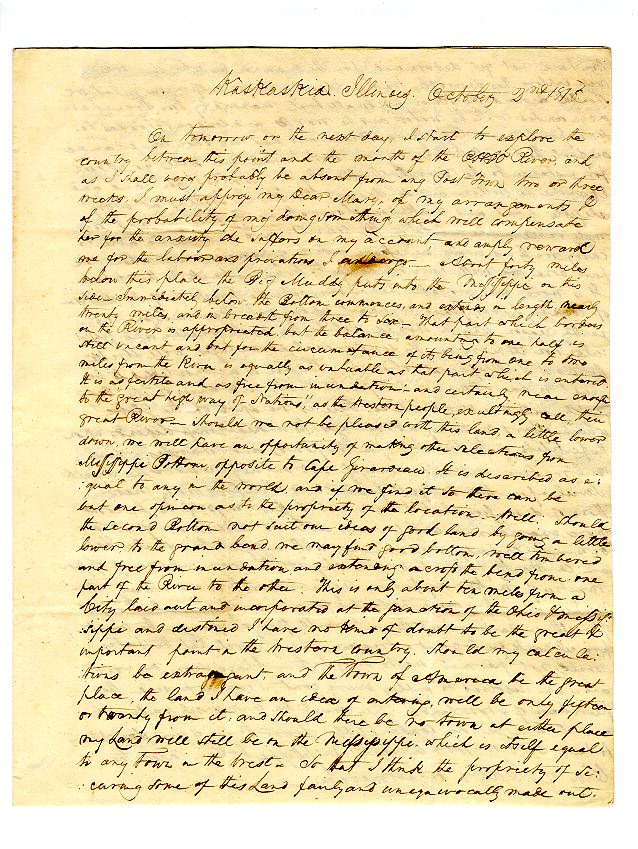 Kaskaskia. Illinois. October 2nd 1818
On tomorrow or the next day, I start to explore the
country between this point and the mouth of the Ohio River, and
as I shall very probably be absent from any Post Town two or three
weeks, I must apprize my Dear Mary, of my arrangements &
of the probability of my doing something which will compensate
her for the anxiety she suffers on my account, and amply reward
me for the labour and privations I undergo — About forty miles
below this place the Big Muddy puts into the Missisippi on this
side — Immediately below the Bottom commences, and extends in length nearly
twenty miles, and in breadth from three to six — That part which borders
on the River is appropriated, but the balance, amounting to one half is
still vacant and but for the circumstance of its being from one to two
miles from the River is equally as valuable as that part which is entered.
It is as fertile and as free from inundation — and certainly near enough
to the "great high way of Nations," as the Western people, exultingly call their
great River — Should we not be pleased with this land, a little lower
down, we will have an opportunity of making other selections from
Missisippi Bottom, opposite to Cape Girardeau. It is described as e:
:qual to any in the world, and if we find it so there can be
but one opinion as to the propriety of the location — Well. Should
the second Bottom not suit our ideas of good land by going a little
lower, to the grand bend we may find good bottom, well timbered
and free from inundation and extending across the bend from one
part of the River to the other. This is only about ten miles from a
City laid out and incorporated at the junction of the Ohio & Missis:
:sippi and destined I have no kind of doubt to be the great &
important point in the Western country. Should my calcula:
:tions be extravagant, and the Town of America be the great
place, the land I have an idea of entering, will be only fifteen
or twenty from it, and should there be no town at either place
my Land will still be on the Missisippi, which is itself equal
to any Town in the West — So that I think the propriety of se:
:curing some of this Land fairly and unequivocally made out.